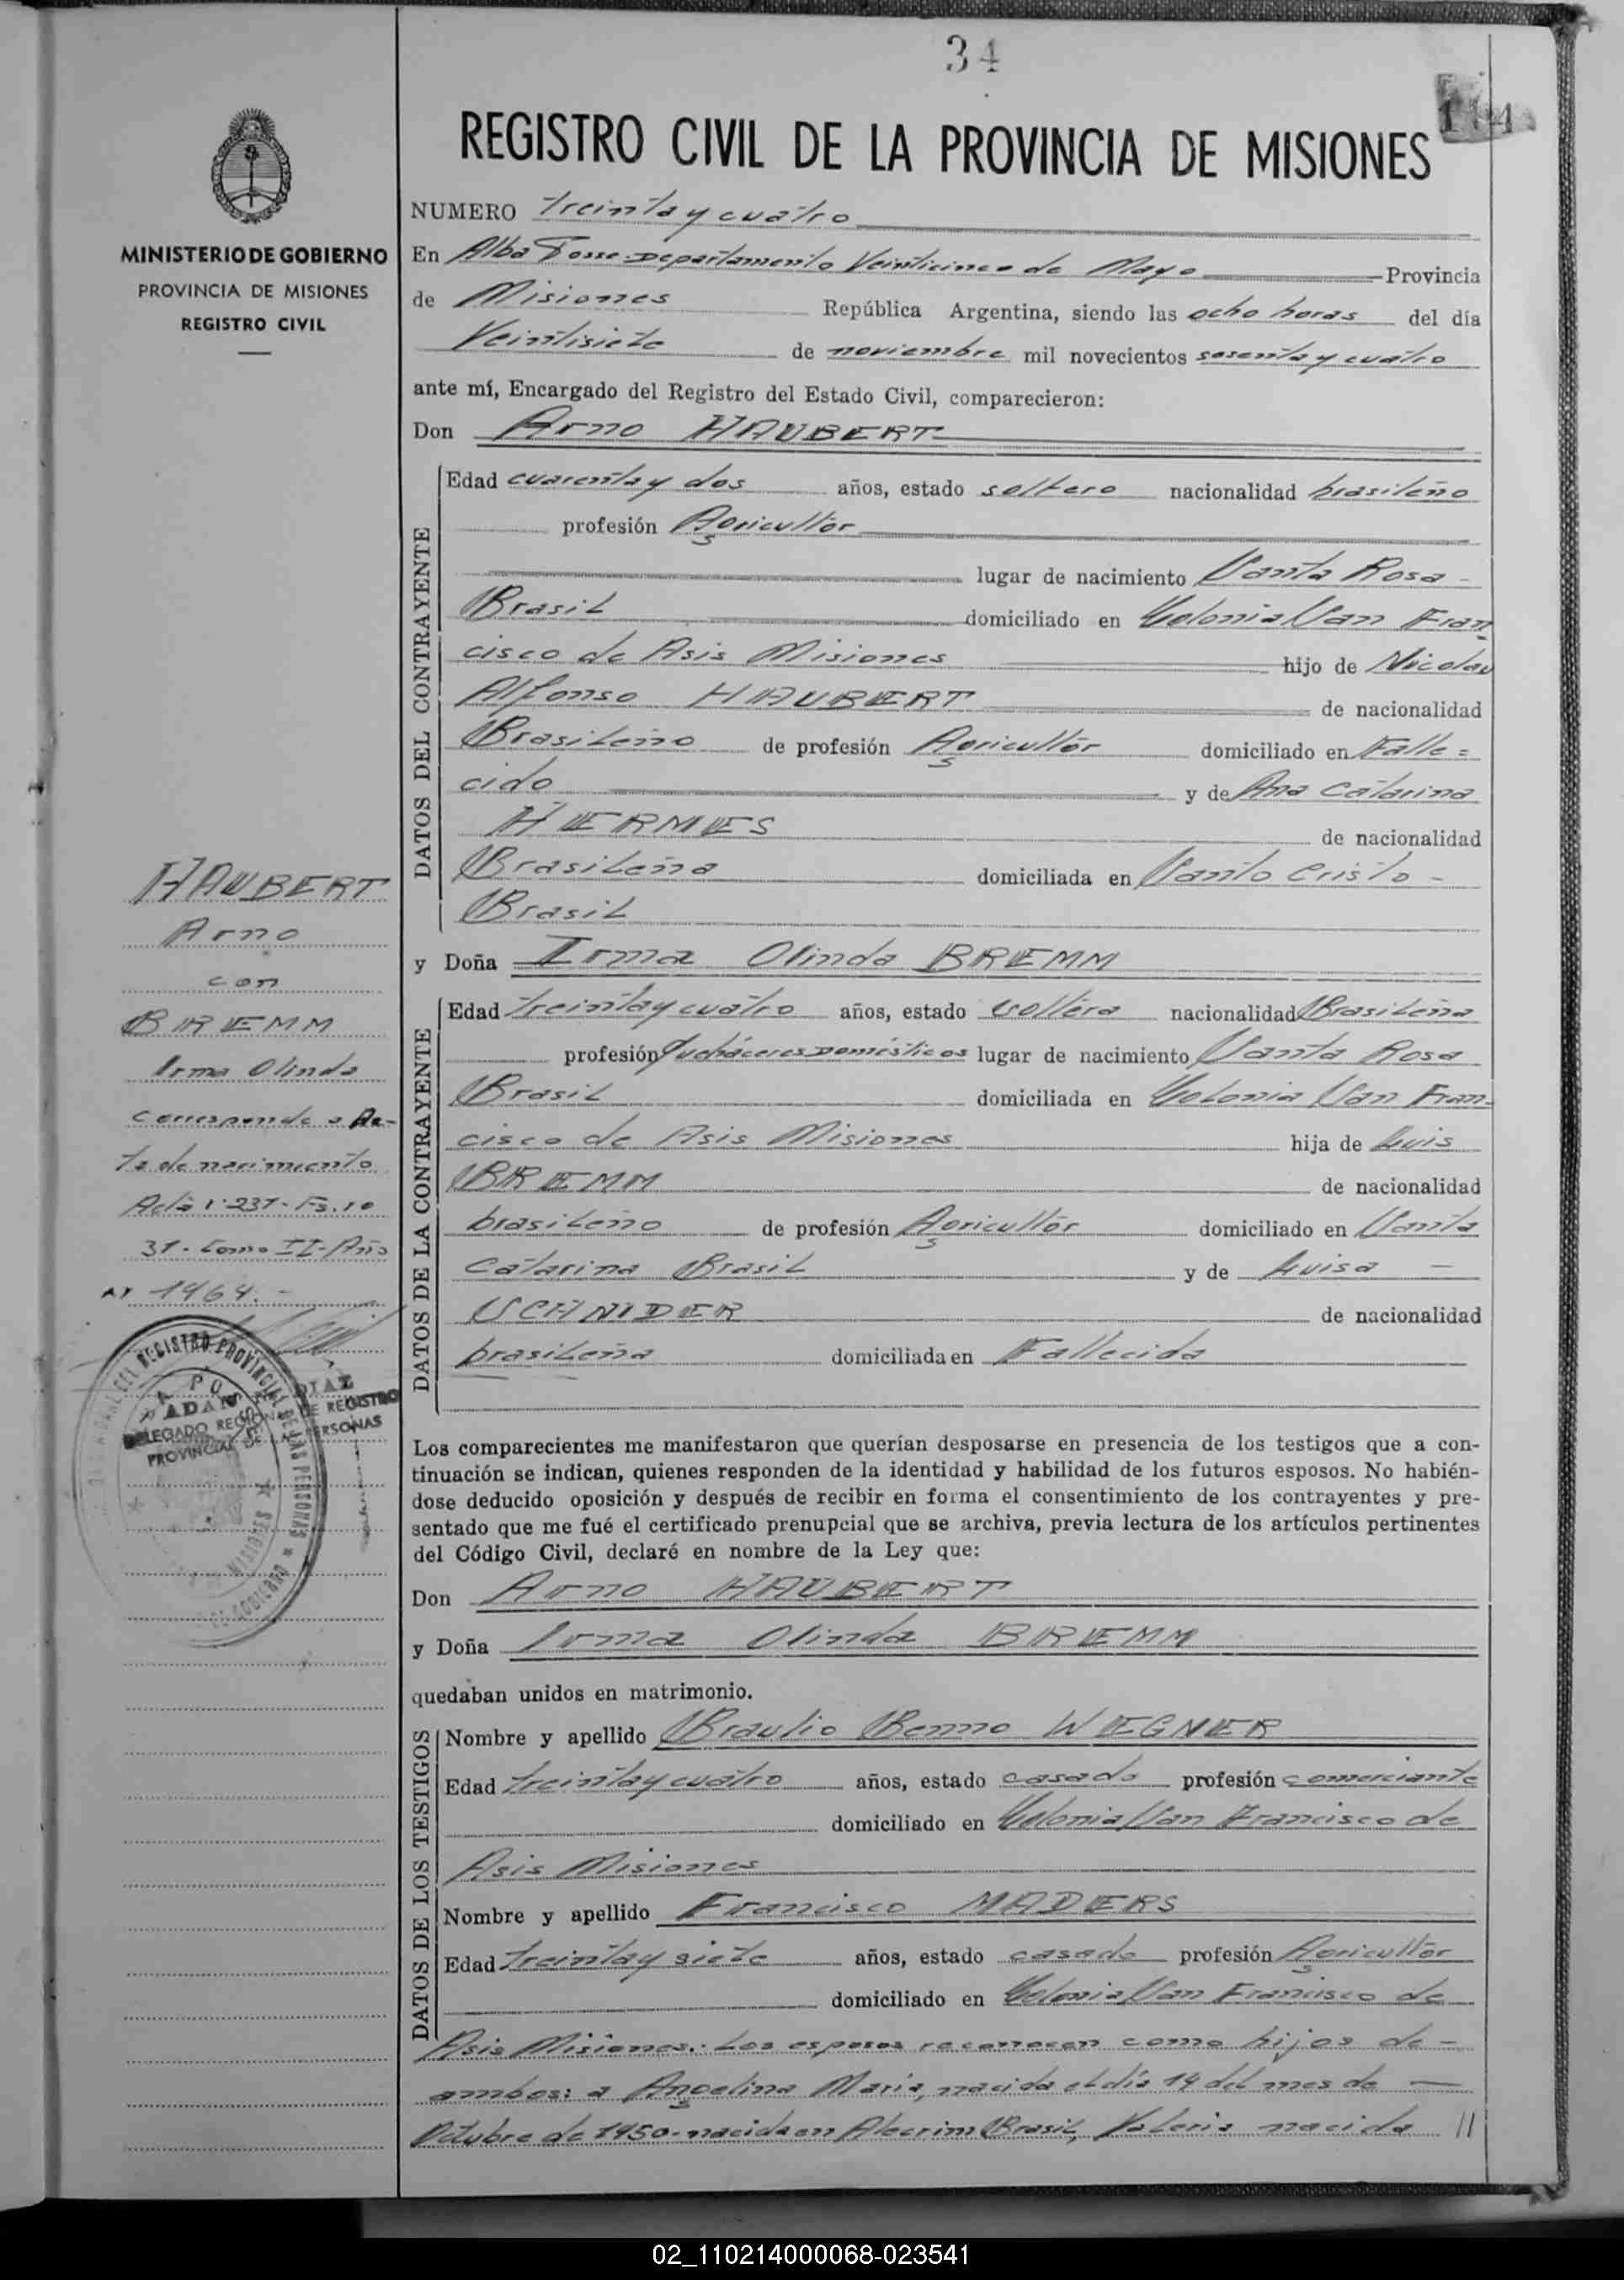 34
174
REGISTRO CIVIL DE LA PROVINCIA DE MISIONES
MINISTERIO DE GOBIERNO
PROVINCIA DE MISIONES
REGISTRO CIVIL
NUMERO treinta y cuatro
En Alba Posse Departamento Veinticinco de Mayo Provincia
de Misiones República Argentina, siendo las ocho horas del día
Veintisiete de noviembre mil novecientos sesenta y cuatro
ante mí, Encargado del Registro del Estado Civil, comparecieron:
Don Arno HAUBERT
DATOS DEL CONTRAYENTE
Edad cuarenta y dos años, estado soltero nacionalidad brasileño
profesión Agricultor
lugar de nacimiento Santa Rosa -
Brasil domiciliado en Colonia San Fran-
cisco de Asis Misiones hijo de Nicolau
Alfonso HAUBERT de nacionalidad
Brasileño de profesión Agricultor domiciliado en Falle=
cido y de Ana Catarina
HERMES de nacionalidad
Brasileña domiciliada en Santo Cristo -
Brasil
y Doña Irma Olinda BREMM
DATOS DE LA CONTRAYENTE
Edad treinta y cuatro años, estado soltera nacionalidad Brasileña
profesión Quehaceres Domésticos lugar de nacimiento Santa Rosa
Brasil domiciliada en Colonia San Fran-
cisco de Asis Misiones hija de Luis
BREMM de nacionalidad
brasileño de profesión Agricultor domiciliado en Santa
Catarina Brasil y de Luisa -
SCHNIDER de nacionalidad
brasileña domiciliada en Fallecida
HAUBERT
Arno
con
BREMM
Irma Olinda
corresponde a Ac-
ta de nacimiento
Acta 1·237- Fs.
37- Tomo II- Año
1964.-
REGISTRO PROVINCIAL DE LAS PERSONAS
DIAZ
DELEGADO REGIONAL DE REGISTRO
PROVINCIAL DE LAS PERSONAS
Los comparecientes me manifestaron que querían desposarse en presencia de los testigos que a con-
tinuación se indican, quienes responden de la identidad y habilidad de los futuros esposos. No habién-
dose deducido oposición y después de recibir en forma el consentimiento de los contrayentes y pre-
sentado que me fué el certificado prenupcial que se archiva, previa lectura de los artículos pertinentes
del Código Civil, declaré en nombre de la Ley que:
Don Arno HAUBERT
y Doña Irma Olinda BREMM
quedaban unidos en matrimonio.
DATOS DE LOS TESTIGOS
Nombre y apellido Braulio Benno WEGNER
Edad treinta y cuatro años, estado casado profesión comerciante
domiciliado en Colonia San Francisco de
Asis Misiones
Nombre y apellido Francisco MADERS
Edad treinta y siete años, estado casado profesión Agricultor
domiciliado en Colonia San Francisco de
Asis Misiones.- Los esposos reconocen como hijos de -
ambos: a Angelina Maria, nacida el día 14 del mes de -
Octubre de 1950- nacida en Alecrim Brasil, Valeria nacida //
02_110214000068-023541